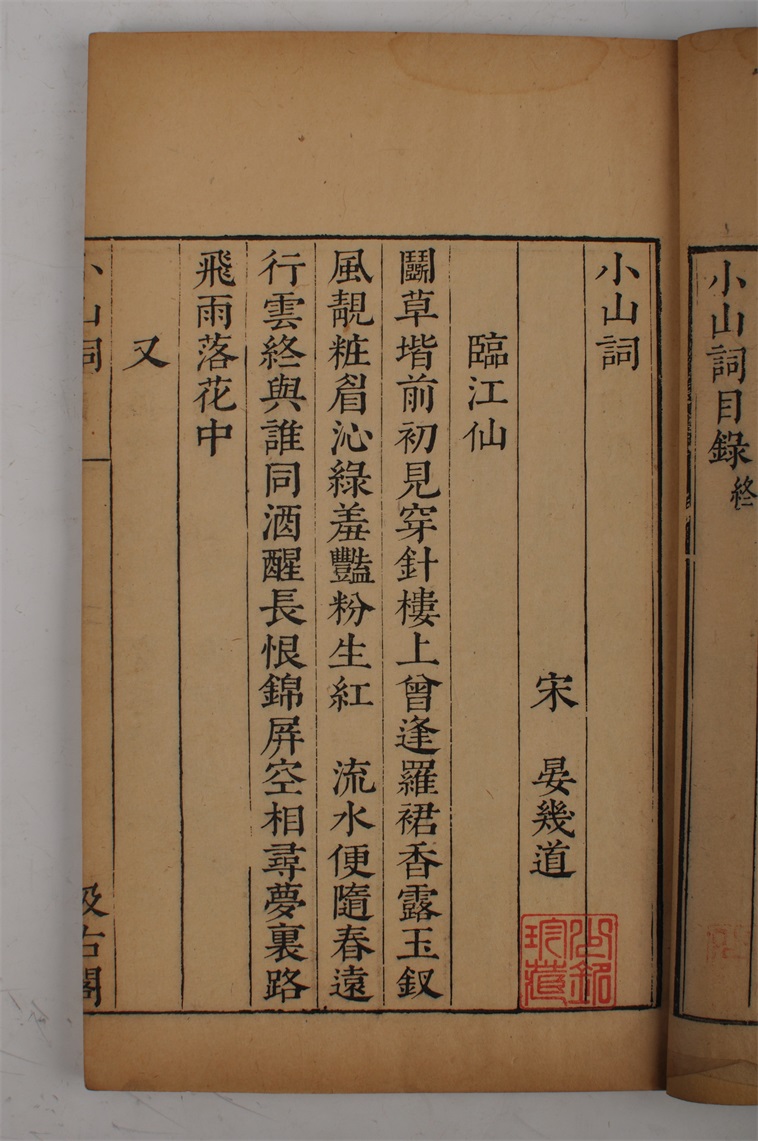 小山詞目錄終
小山詞
宋 晏幾道
臨江仙
鬭草堦前初見穿針樓上曾逢羅裙香露玉釵
風靚粧眉沁綠羞豔粉生紅 流水便隨春遠
行雲終與誰同酒醒長恨錦屏空相尋夢裏路
飛雨落花中
又
小山詞
汲古閣